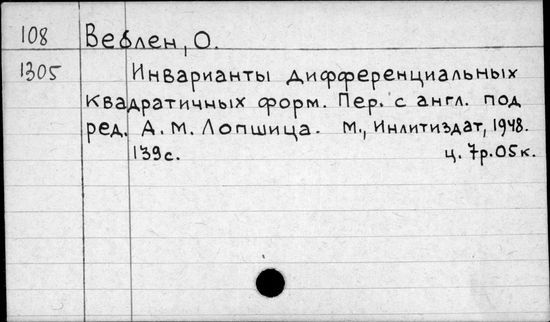 108 Веблен, О.
1305 Инварианты дифференциальных
квадратичных форм. Пер. с англ. под
ред. А. М. Лопшица. М., Инлитиздат, 1948.
139с. ц. 7р.05к.